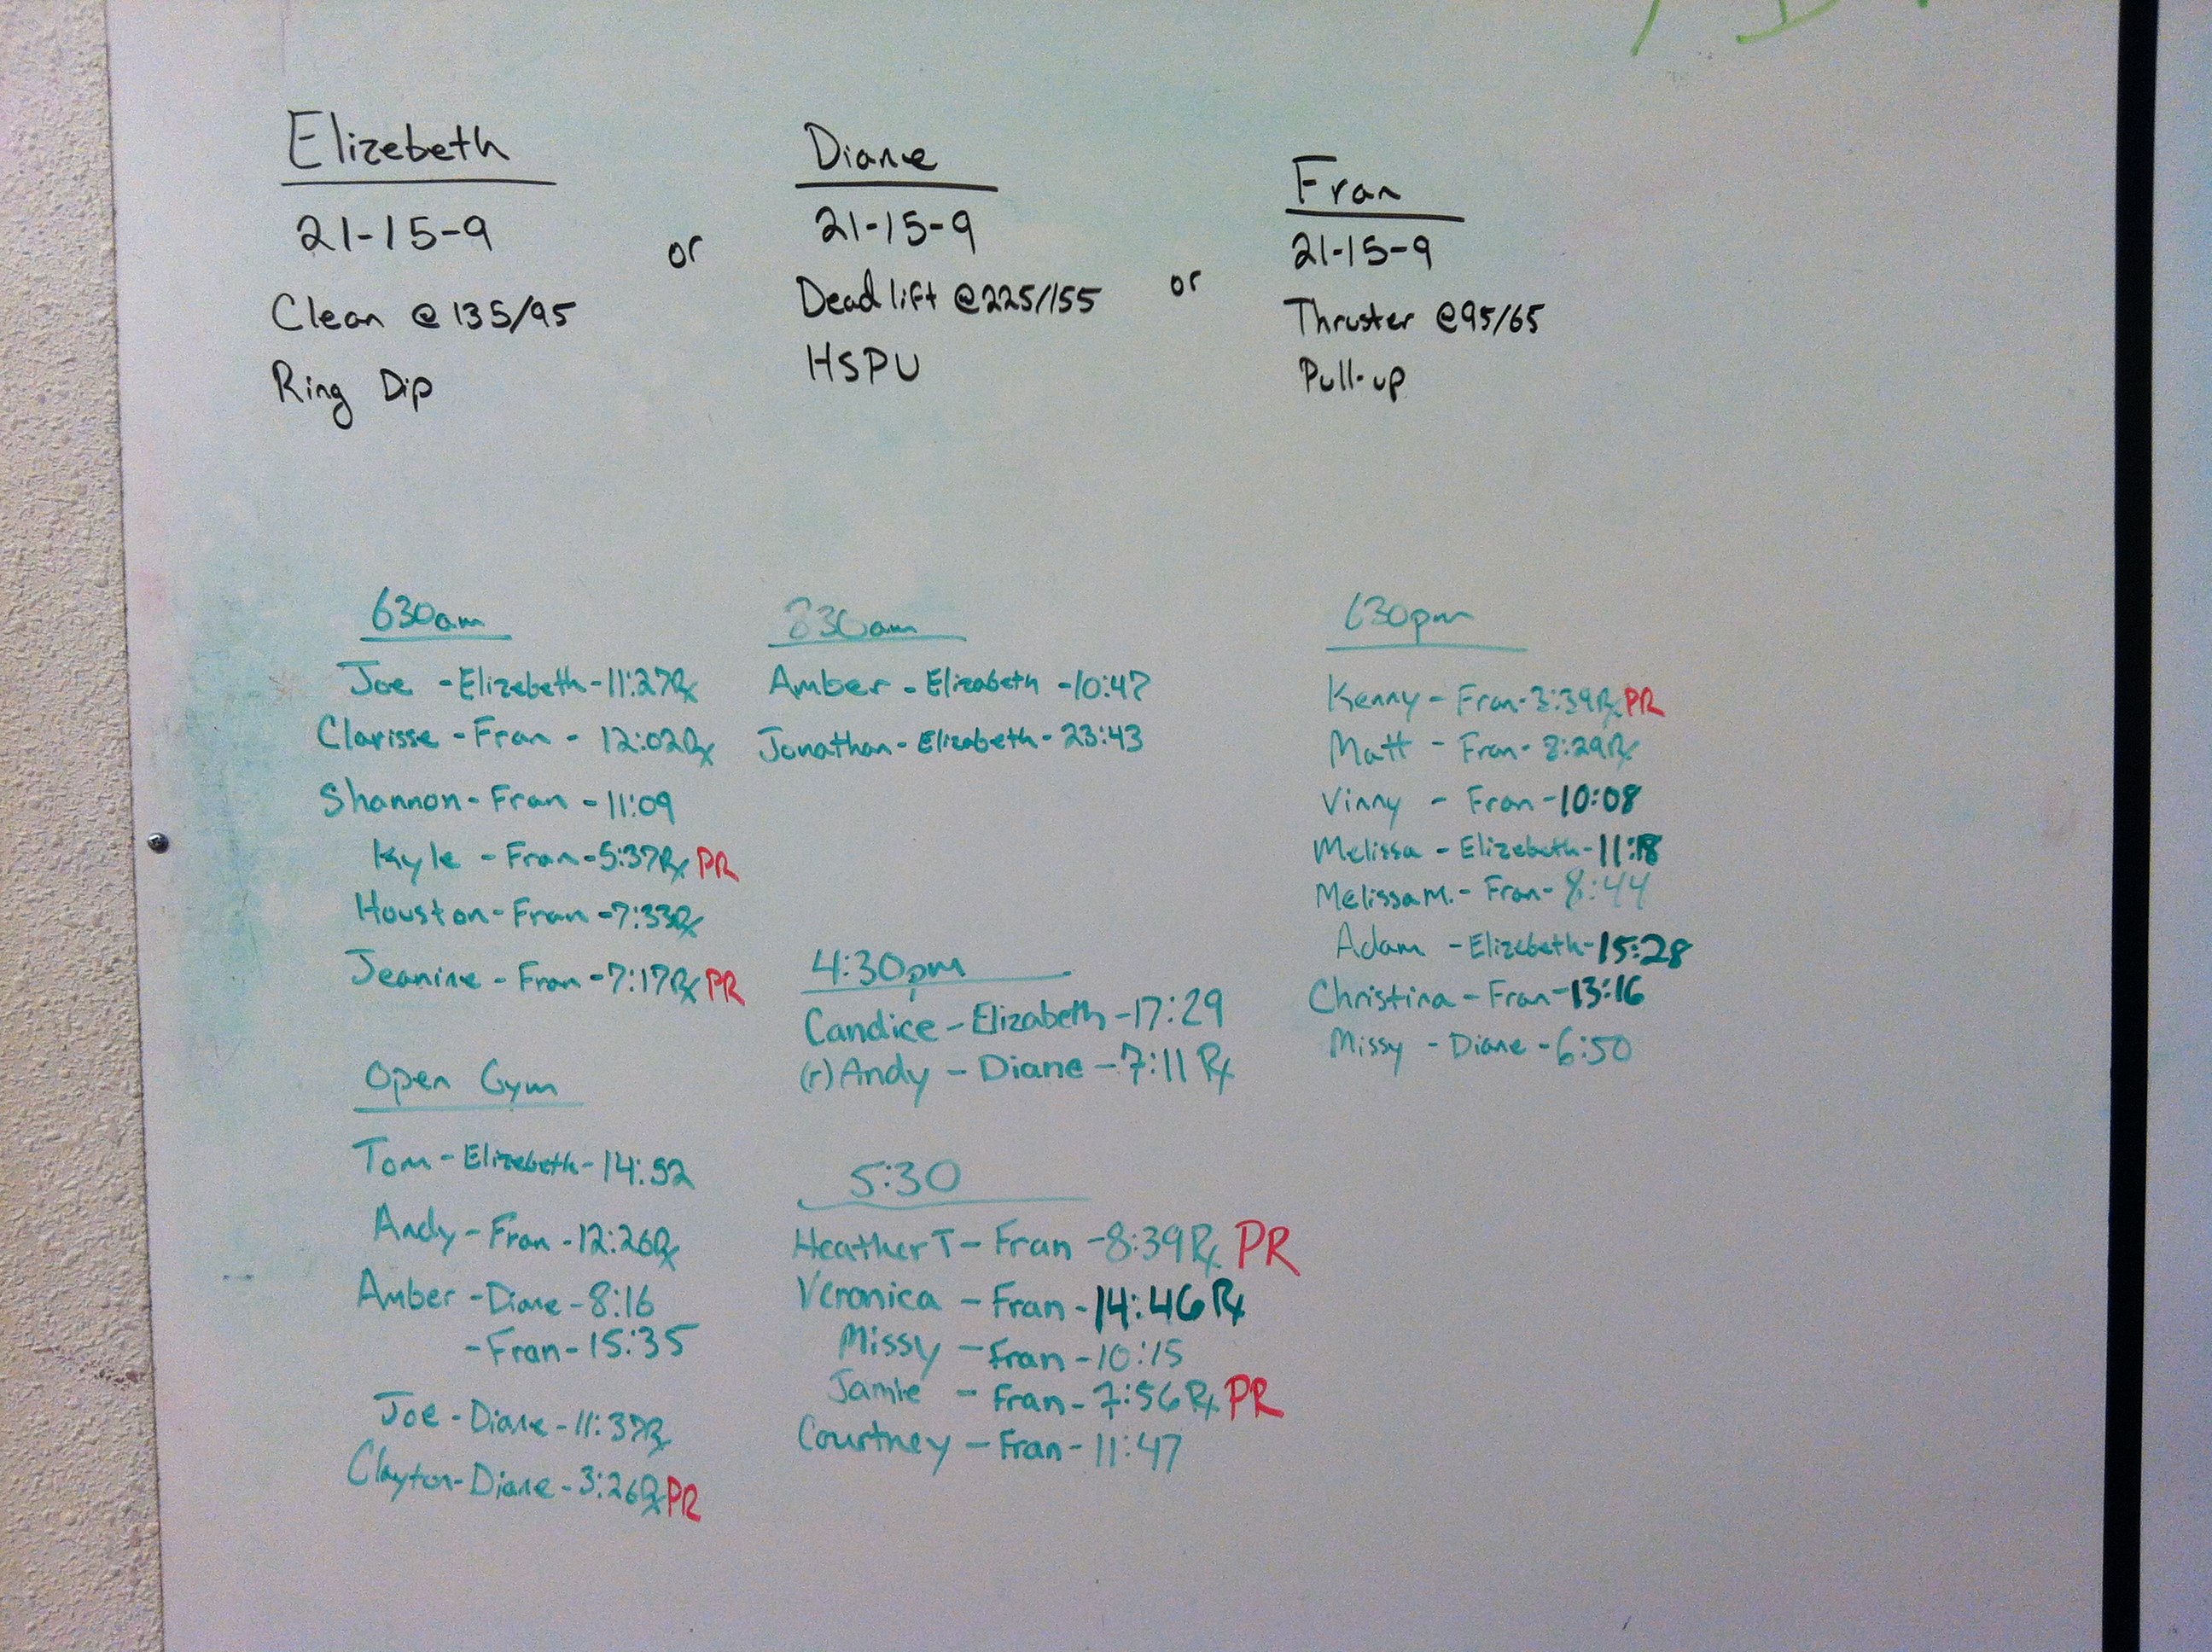 Elizebeth
21-15-9
Clean @ 135/95
Ring Dip
or
Diane
21-15-9
Deadlift @225/155
HSPU
or
Fran
21-15-9
Thruster @95/65
Pull-up
630am
Joe - Elizebeth - 11:27Rx
Clarisse - Fran - 12:02Rx
Shannon - Fran - 11:09
Kyle - Fran - 5:37Rx PR
Houston - Fran - 7:33Rx
Jeanine - Fran - 7:17Rx PR
Open Gym
Tom - Elizebeth - 14:52
Andy - Fran - 12:26Rx
Amber - Diane - 8:16
- Fran - 15:35
Joe - Diane - 11:37Rx
Clayton - Diane - 3:26Rx PR
830am
Amber - Elizabeth - 10:47
Jonathan - Elizabeth - 23:43
4:30pm
Candice - Elizabeth - 17:29
(r) Andy - Diane - 7:11 Rx
5:30
Heather T - Fran - 8:39 Rx PR
Veronica - Fran - 14:46 Rx
Missy - Fran - 10:15
Jamie - Fran - 7:56 Rx PR
Courtney - Fran - 11:47
630pm
Kenny - Fran - 3:39Rx PR
Matt - Fran - 8:29Rx
Vinny - Fran - 10:08
Melissa - Elizebeth - 11:18
Melissa M. - Fran - 8:44
Adam - Elizebeth - 15:28
Christina - Fran - 13:16
Missy - Diane - 6:50